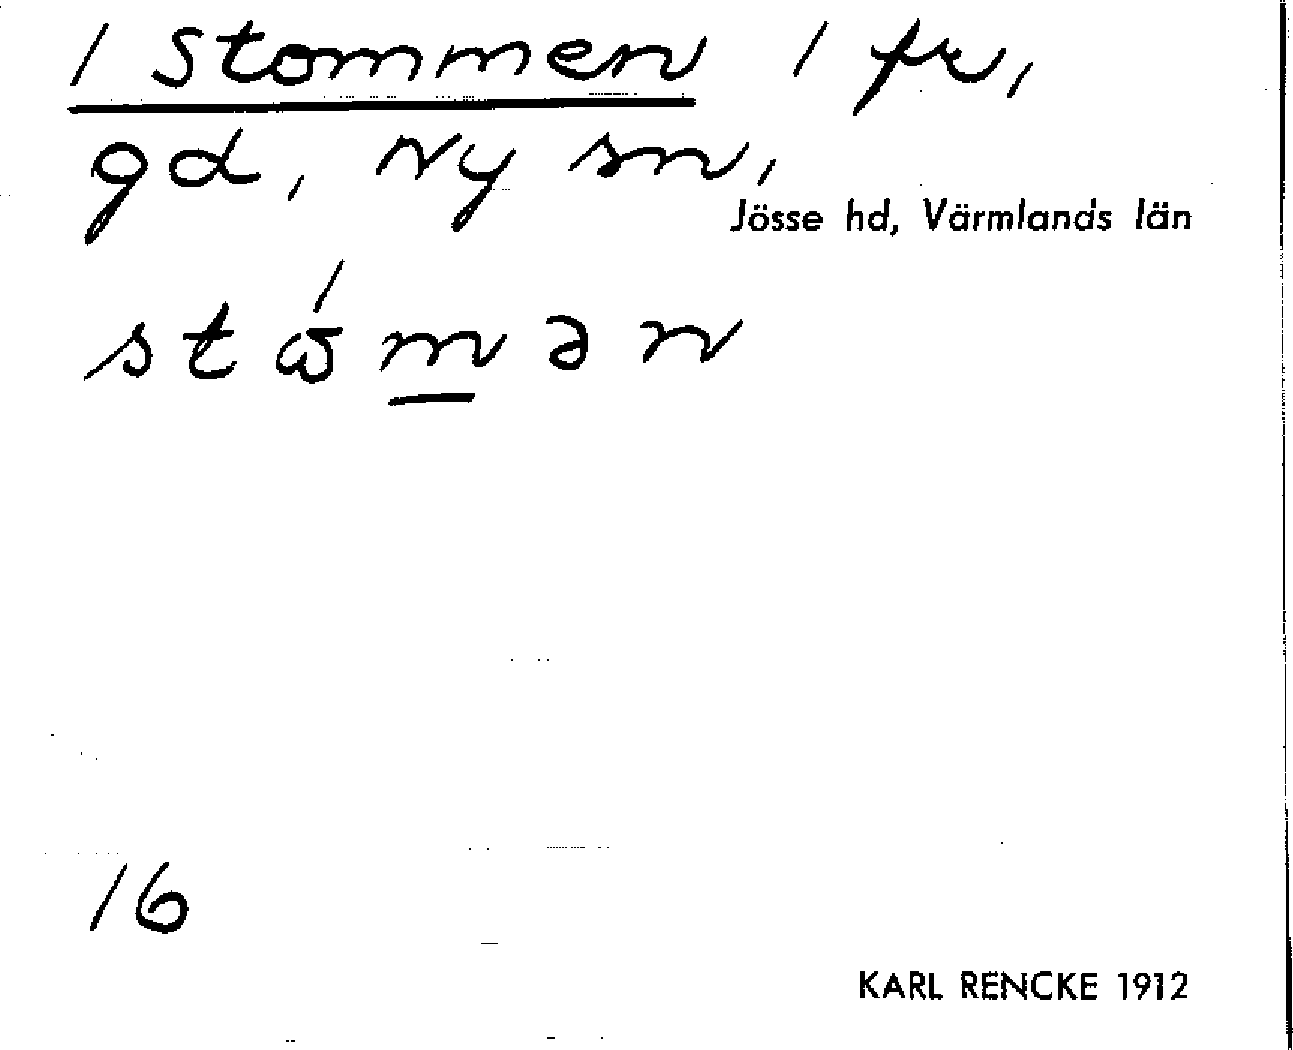 / Stommen / fr,
gd, Ny sn,
Jösse hd, Värmlands län
stω̄́mən
16
KARL RENCKE 1912